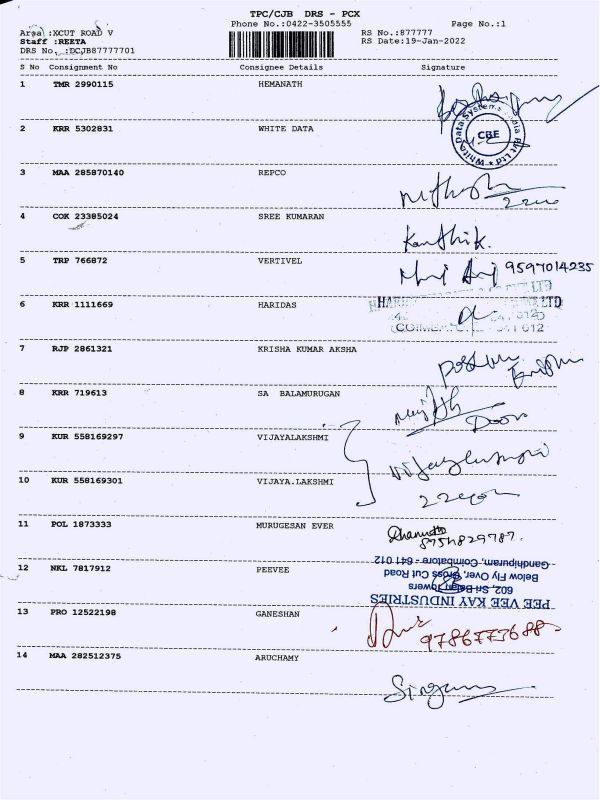 TPC/CJB DRS - PCX
Phone No.:0422-3505555 Page No.:1
Area :XCUT ROAD V RS No.:877777
Staff :REETA RS Date:19-Jan-2022
DRS No. :DCJB87777701
S No Consignment No Consignee Details Signature
1 TMR 2990115 HEMANATH
2 KRR 5302831 WHITE DATA
White Data Systems India Pvt Ltd
CBE
3 MAA 285870140 REPCO
4 COK 23385024 SREE KUMARAN
Karthik.
5 TRP 766872 VERTIVEL
9597014235
6 KRR 1111669 HARIDAS
7 RJP 2861321 KRISHA KUMAR AKSHA
8 KRR 719613 SA BALAMURUGAN
Door
9 KUR 558169297 VIJAYALAKSHMI
10 KUR 558169301 VIJAYA.LAKSHMI
11 POL 1873333 MURUGESAN EVER
8754829787.
12 NKL 7817912 PEEVEE
PEE VEE KAY INDUSTRIES
602, Sri Balaji Towers
Below Fly Over, Cross Cut Road
Gandhipuram, Coimbatore - 641 012
13 PRO 12522198 GANESHAN
9786773688
14 MAA 282512375 ARUCHAMY